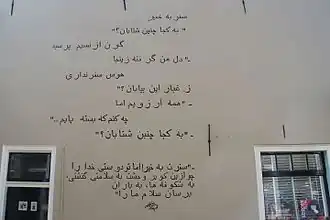 سفر به خیر
"به کجا چنین شتابان؟"
گون از نسیم پرسید
- "دل من گرفته زینجا
هوس سفر نداری
ز غبار این بیابان؟"
- "همه آرزویم اما
چه کنم که بسته پایم..."
- "به کجا چنین شتابان؟"
- "سفرت به خیر! اما تو دوستی خدا را
چو ازین کویر وحشت به سلامتی گذشتی،
به شکوفه ها، به باران
برسان سلام ما را"